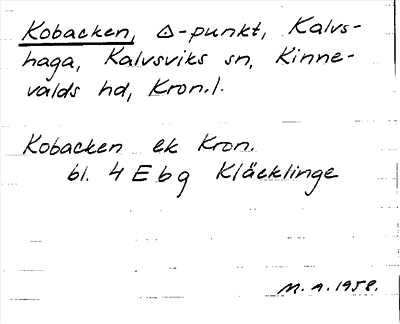 Kobacken, △-punkt, Kalvs-
haga, Kalvsviks sn, Kinne-
valds hd, Kron. l.
Kobacken ek Kron.
bl. 4 E b g Kläcklinge
M. A. 1958.